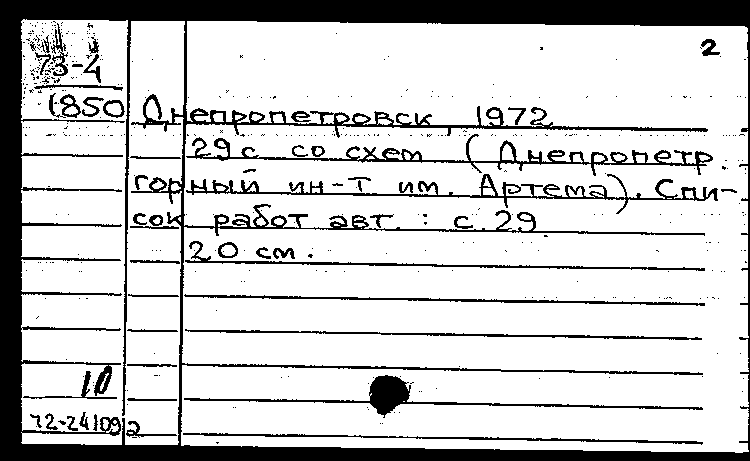 2
73-4
1850 Днепропетровск, 1972
29с со схем (Днепропетр.
горный ин-т им. Артема). Спи-
сок работ авт. : с. 29
20 см.
10
72-24109а